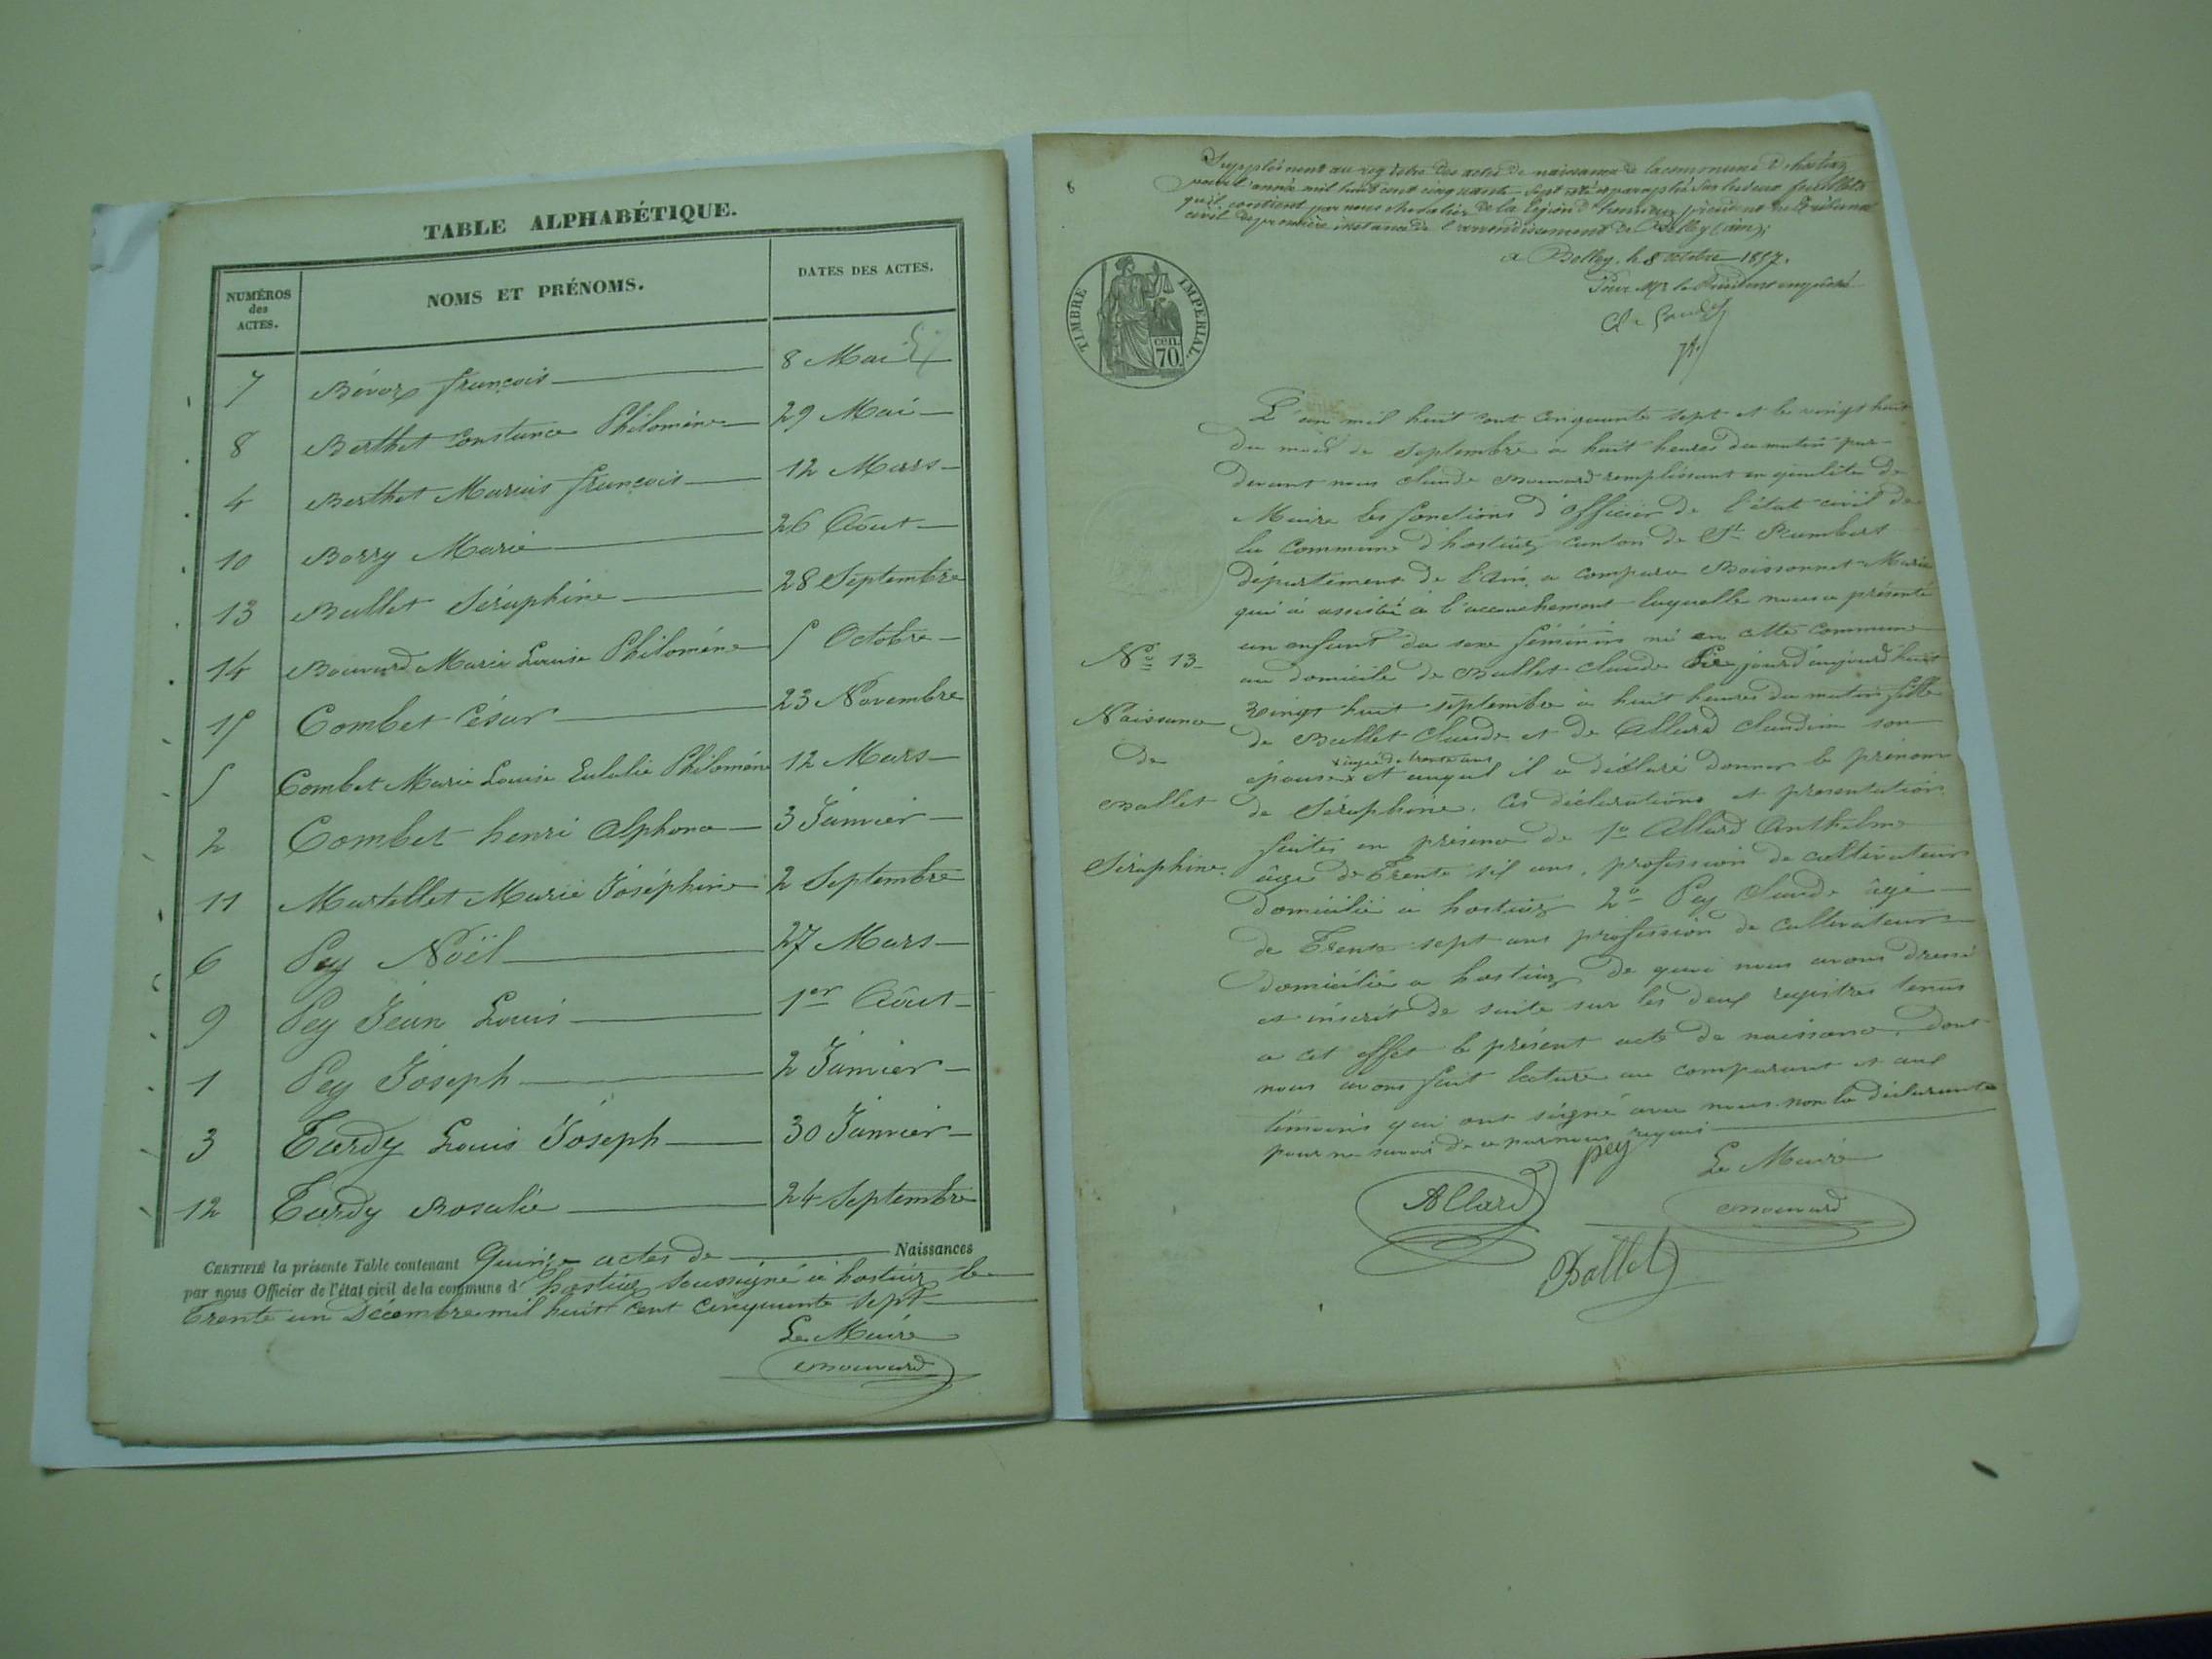 TABLE ALPHABÉTIQUE.
NUMÉROS des ACTES.
NOMS ET PRÉNOMS.
DATES DES ACTES.
7 Bévoz françois 8 Mai
8 Berthet Constance Philomène 29 Mai
4 Berthet Marius françois 12 Mars
10 Borry Marie 26 Août
13 Ballet Séraphine 28 Septembre
14 Bouvard Marie Louise Philomène 5 Octobre
15 Combet César 23 Novembre
5 Combet Marie Louise Eulalie Philomène 12 Mars
2 Combet henri Alphonse 3 Janvier
11 Martellet Marie Joséphine 2 Septembre
6 Pey Noël 27 Mars
9 Pey Jean Louis 1er Août
1 Pey Joseph 2 Janvier
3 Tardy Louis Joseph 30 Janvier
12 Tardy Rosalie 24 Septembre
CERTIFIÉ la présente Table contenant Quinze actes de Naissances
par nous Officier de l'état civil de la commune d' hostiaz soussigné à hostiaz le
Trente un Décembre mil huit cent cinquante sept
Le Maire
Bouvard
Supplément au registre des actes de naissance de la commune d'hostiaz
pour l'année mil huit cent cinquante sept coté et paraphé sur les deux feuillets
qu'il contient par nous chevalier de la légion d'honneur président du Tribunal
civil de première instance de l'arrondissement de Belley (ain);
a Belley, le 8 octobre 1857.
Pour Mr le Président empêché
TIMBRE IMPÉRIAL.
cen. 70.
L'an mil huit cent cinquante sept et le vingt huit
du mois de Septembre a huit heures du matin par
devant nous Claude Bouvard remplissant en qualité de
Maire les fonctions d'officier de l'état civil de
la Commune d'hostiaz canton de St Rambert
département de l'Ain, a comparu Boissonnet Marie
qui a assisté à l'accouchement laquelle nous a présenté
un enfant du sexe féminin né en cette commune
No 13
au domicile de Ballet Claude le jour d'aujourd'hui
vingt huit septembre à huit heures du matin, fille
Naissance
de Ballet Claude et de Allard Claudine son
de
agée de trente ans
épouse et auquel il a déclaré donner le prénom
Ballet
de Séraphine. Ces déclarations et présentation
Séraphine.
faites en présence de 1o Allard Anthelme
âgé de Trente sil ans, profession de cultivateur
domicilié a hostiaz 2o Pey Claude âgé
de Trente sept ans profession de cultivateur
domicilié a hostiaz de quoi nous avons dressé
et inscrit de suite sur les deux registres tenus
a cet effet le présent acte de naissance, dont
nous avons fait lecture au comparant et aux
témoins qui ont signé avec nous non la déclarante
pour ne savoir de ce par nous requis
Pey
Le Maire
Allard
Bouvard
Ballet